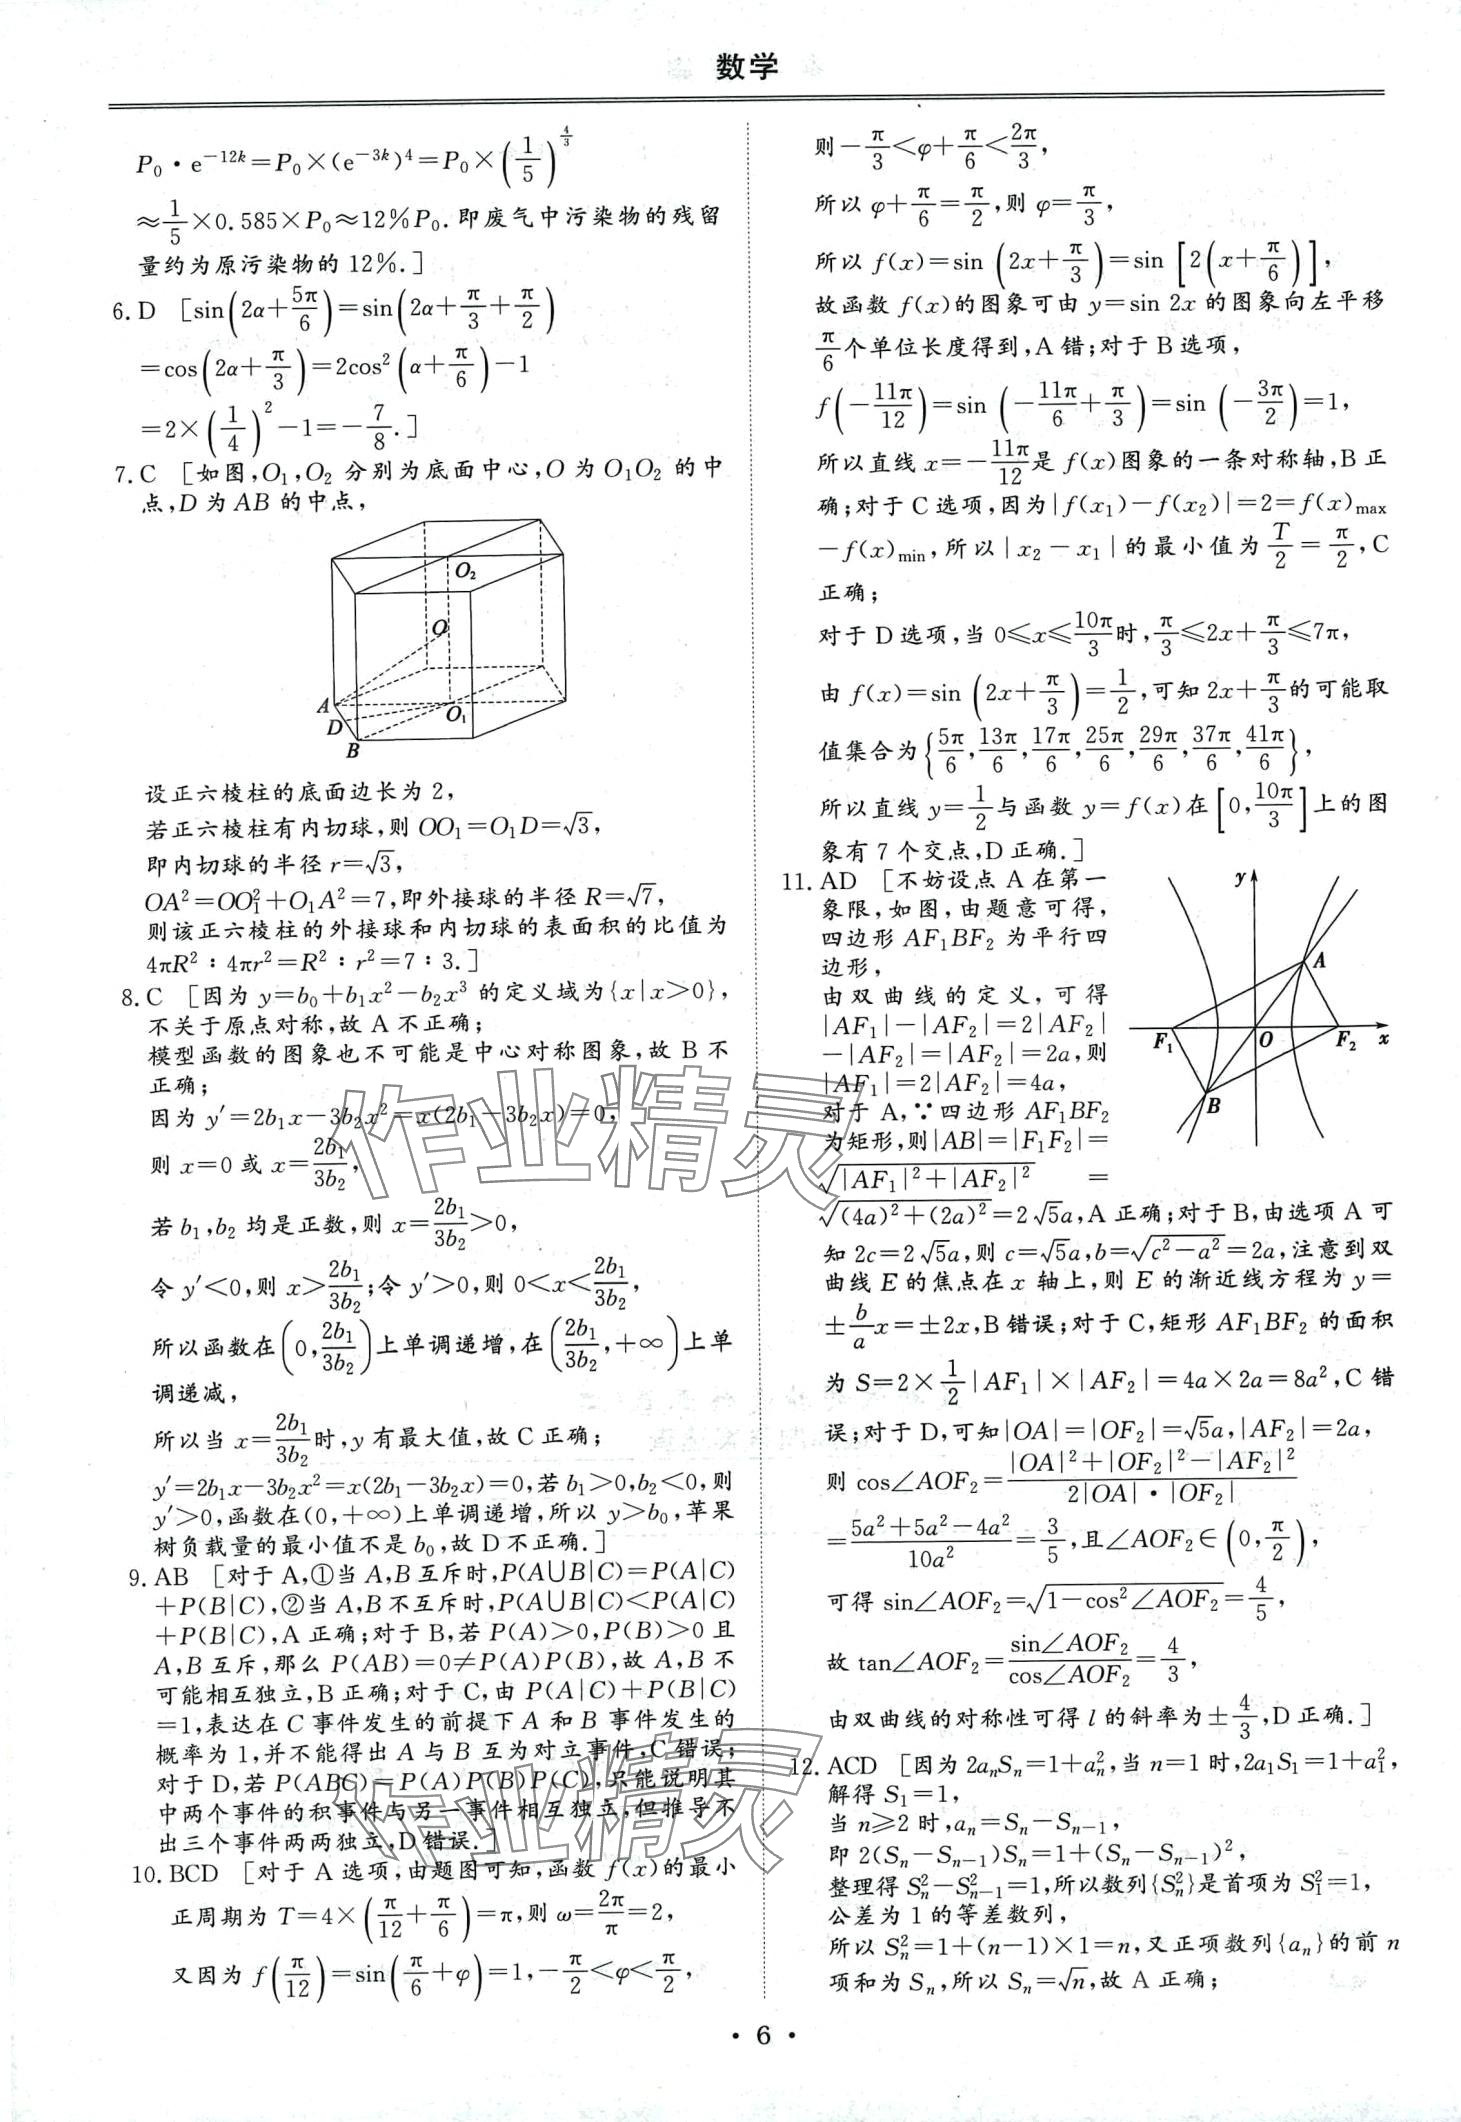 数学
P₀·e⁻¹²ᵏ=P₀×(e⁻³ᵏ)⁴=P₀×(1/5)^(4/3)
≈1/5×0.585×P₀≈12%P₀.即废气中污染物的残留
量约为原污染物的12%.]
6.D [sin(2α+5π/6)=sin(2α+π/3+π/2)
=cos(2α+π/3)=2cos²(α+π/6)-1
=2×(1/4)²-1=-7/8.]
7.C [如图,O₁,O₂分别为底面中心,O为O₁O₂的中
点,D为AB的中点,
O₂
O
A
D
O₁
B
设正六棱柱的底面边长为2,
若正六棱柱有内切球,则OO₁=O₁D=√3,
即内切球的半径r=√3,
OA²=OO₁²+O₁A²=7,即外接球的半径R=√7,
则该正六棱柱的外接球和内切球的表面积的比值为
4πR²∶4πr²=R²∶r²=7∶3.]
8.C [因为y=b₀+b₁x²-b₂x³的定义域为{x|x>0},
不关于原点对称,故A不正确;
模型函数的图象也不可能是中心对称图象,故B不
正确;
因为y′=2b₁x-3b₂x²=x(2b₁-3b₂x)=0,
则x=0或x=2b₁/3b₂,
若b₁,b₂均是正数,则x=2b₁/3b₂>0,
令y′<0,则x>2b₁/3b₂;令y′>0,则0<x<2b₁/3b₂,
所以函数在(0,2b₁/3b₂)上单调递增,在(2b₁/3b₂,+∞)上单
调递减,
所以当x=2b₁/3b₂时,y有最大值,故C正确;
y′=2b₁x-3b₂x²=x(2b₁-3b₂x)=0,若b₁>0,b₂<0,则
y′>0,函数在(0,+∞)上单调递增,所以y>b₀,苹果
树负载量的最小值不是b₀,故D不正确.]
9.AB [对于A,①当A,B互斥时,P(A∪B|C)=P(A|C)
+P(B|C),②当A,B不互斥时,P(A∪B|C)<P(A|C)
+P(B|C),A正确;对于B,若P(A)>0,P(B)>0且
A,B互斥,那么P(AB)=0≠P(A)P(B),故A,B不
可能相互独立,B正确;对于C,由P(A|C)+P(B|C)
=1,表达在C事件发生的前提下A和B事件发生的
概率为1,并不能得出A与B互为对立事件,C错误;
对于D,若P(ABC)=P(A)P(B)P(C),只能说明其
中两个事件的积事件与另一事件相互独立,但推导不
出三个事件两两独立,D错误.]
10.BCD [对于A选项,由题图可知,函数f(x)的最小
正周期为T=4×(π/12+π/6)=π,则ω=2π/π=2,
又因为f(π/12)=sin(π/6+φ)=1,-π/2<φ<π/2,
则-π/3<φ+π/6<2π/3,
所以φ+π/6=π/2,则φ=π/3,
所以f(x)=sin(2x+π/3)=sin[2(x+π/6)],
故函数f(x)的图象可由y=sin 2x的图象向左平移
π/6个单位长度得到,A错;对于B选项,
f(-11π/12)=sin(-11π/6+π/3)=sin(-3π/2)=1,
所以直线x=-11π/12是f(x)图象的一条对称轴,B正
确;对于C选项,因为|f(x₁)-f(x₂)|=2=f(x)max
-f(x)min,所以|x₂-x₁|的最小值为T/2=π/2,C
正确;
对于D选项,当0≤x≤10π/3时,π/3≤2x+π/3≤7π,
由f(x)=sin(2x+π/3)=1/2,可知2x+π/3的可能取
值集合为{5π/6,13π/6,17π/6,25π/6,29π/6,37π/6,41π/6},
所以直线y=1/2与函数y=f(x)在[0,10π/3]上的图
象有7个交点,D正确.]
11.AD [不妨设点A在第一
象限,如图,由题意可得,
四边形AF₁BF₂为平行四
边形,
由双曲线的定义,可得
|AF₁|-|AF₂|=2|AF₂|
-|AF₂|=|AF₂|=2a,则
|AF₁|=2|AF₂|=4a,
对于A,∵四边形AF₁BF₂
为矩形,则|AB|=|F₁F₂|=
√(|AF₁|²+|AF₂|²) =
y
A
F₁
O
F₂
x
B
√((4a)²+(2a)²)=2√5a,A正确;对于B,由选项A可
知2c=2√5a,则c=√5a,b=√(c²-a²)=2a,注意到双
曲线E的焦点在x轴上,则E的渐近线方程为y=
±b/a x=±2x,B错误;对于C,矩形AF₁BF₂的面积
为S=2×1/2|AF₁|×|AF₂|=4a×2a=8a²,C错
误;对于D,可知|OA|=|OF₂|=√5a,|AF₂|=2a,
则cos∠AOF₂=(|OA|²+|OF₂|²-|AF₂|²)/(2|OA|·|OF₂|)
=(5a²+5a²-4a²)/10a²=3/5,且∠AOF₂∈(0,π/2),
可得sin∠AOF₂=√(1-cos²∠AOF₂)=4/5,
故tan∠AOF₂=sin∠AOF₂/cos∠AOF₂=4/3,
由双曲线的对称性可得l的斜率为±4/3,D正确.]
12.ACD [因为2aₙSₙ=1+aₙ²,当n=1时,2a₁S₁=1+a₁²,
解得S₁=1,
当n≥2时,aₙ=Sₙ-Sₙ₋₁,
即2(Sₙ-Sₙ₋₁)Sₙ=1+(Sₙ-Sₙ₋₁)²,
整理得Sₙ²-Sₙ₋₁²=1,所以数列{Sₙ²}是首项为S₁²=1,
公差为1的等差数列,
所以Sₙ²=1+(n-1)×1=n,又正项数列{aₙ}的前n
项和为Sₙ,所以Sₙ=√n,故A正确;
·6·
作业精灵
作业精灵